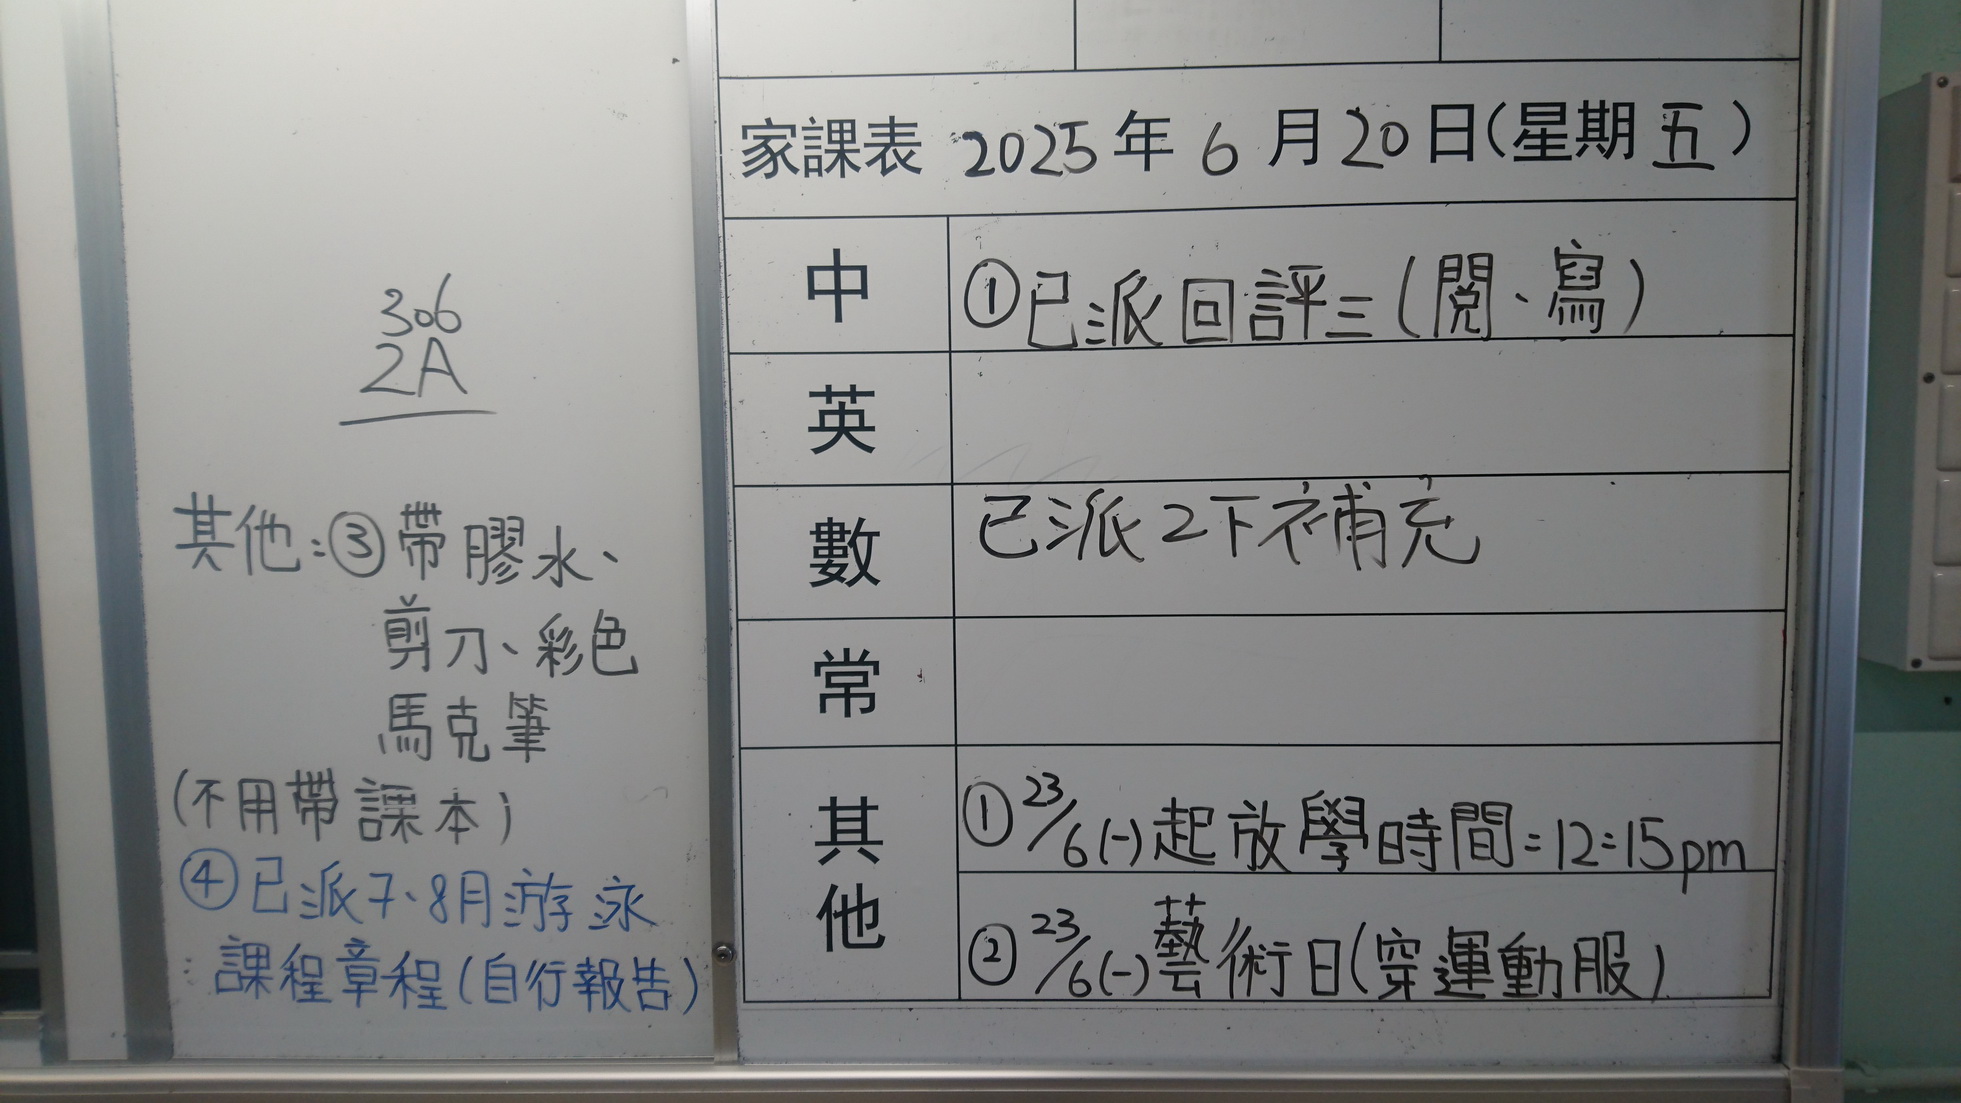 306
2A
其他:③帶膠水、
剪刀、彩色
馬克筆
(不用帶課本)
④已派7、8月游泳
課程章程(自行報告)
家課表 2025年6月20日(星期五)
中 ①已派回評三(閱、寫)
英
數 已派2下補充
常
其他 ①23/6(一)起放學時間:12:15pm
②23/6(一)藝術日(穿運動服)